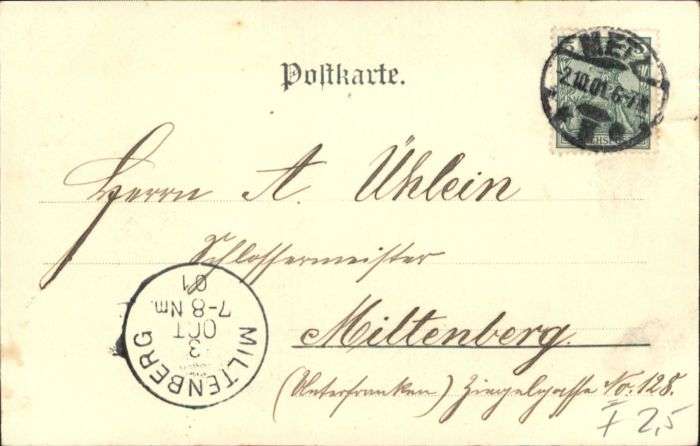 Postkarte.
METZ
2.10.01. 6-7 N
Herrn A. Ühlein
Schlossermeister
Miltenberg.
(Unterfranken) Ziegelgasse No: 128.
MILTENBERG
3
OCT
7-8 Nm.
01
2,5